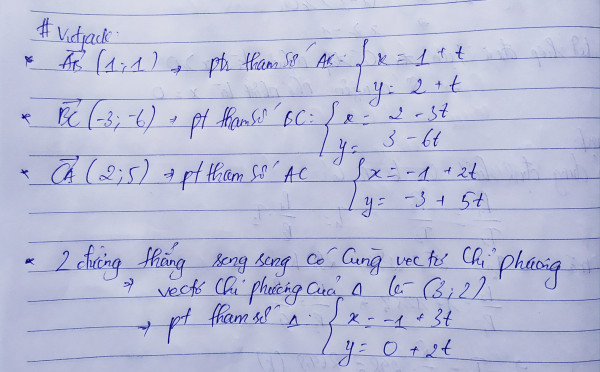 # Vietjack.
* AB (1; 1) → ptr tham số AB: { x = 1 + t
y = 2 + t
* BC (-3; -6) → pt tham số BC: { x = 2 - 3t
y = 3 - 6t
* CA (2; 5) → pt tham số AC { x = -1 + 2t
y = -3 + 5t
* 2 đường thẳng song song có cùng vectơ chỉ phương
→ vectơ chỉ phương của Δ là (3; 2)
→ pt tham số Δ: { x = -1 + 3t
y = 0 + 2t